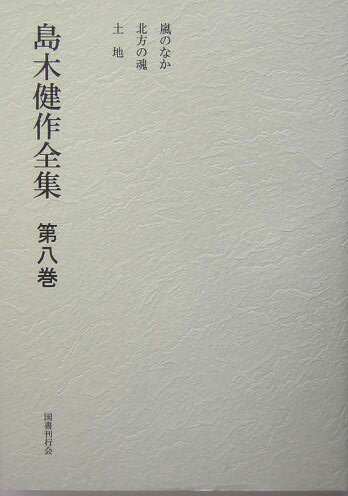 嵐のなか
北方の魂
土地
島木健作全集 第八巻
国書刊行会